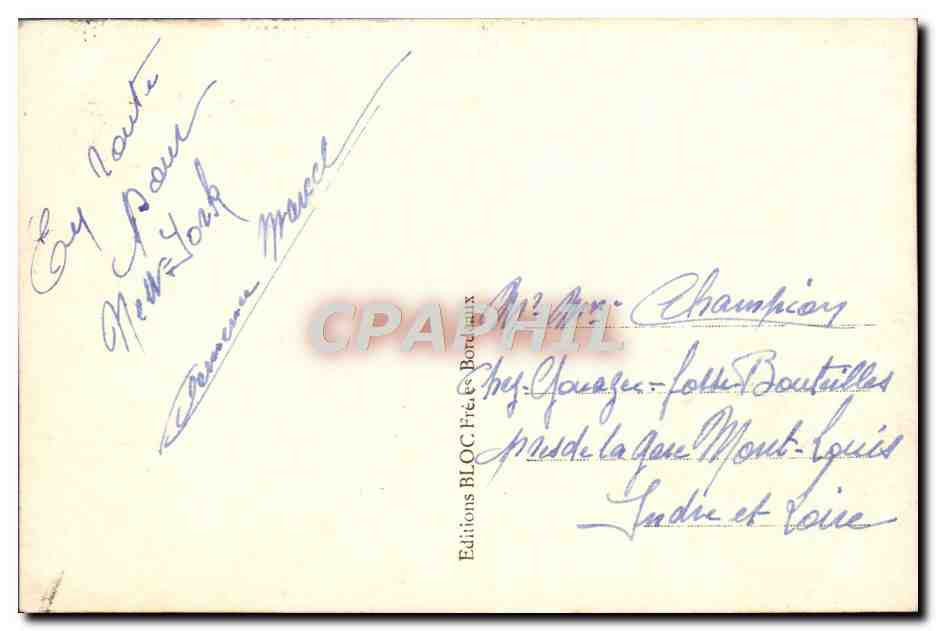 En route
pour
New=York
Marcel
Mr Mme Champion
Chez = Fosse-Bouteilles
près de la gare Mont-Louis
Indre et Loire
Editions BLOC Frères Bordeaux
CPAPHIL.com